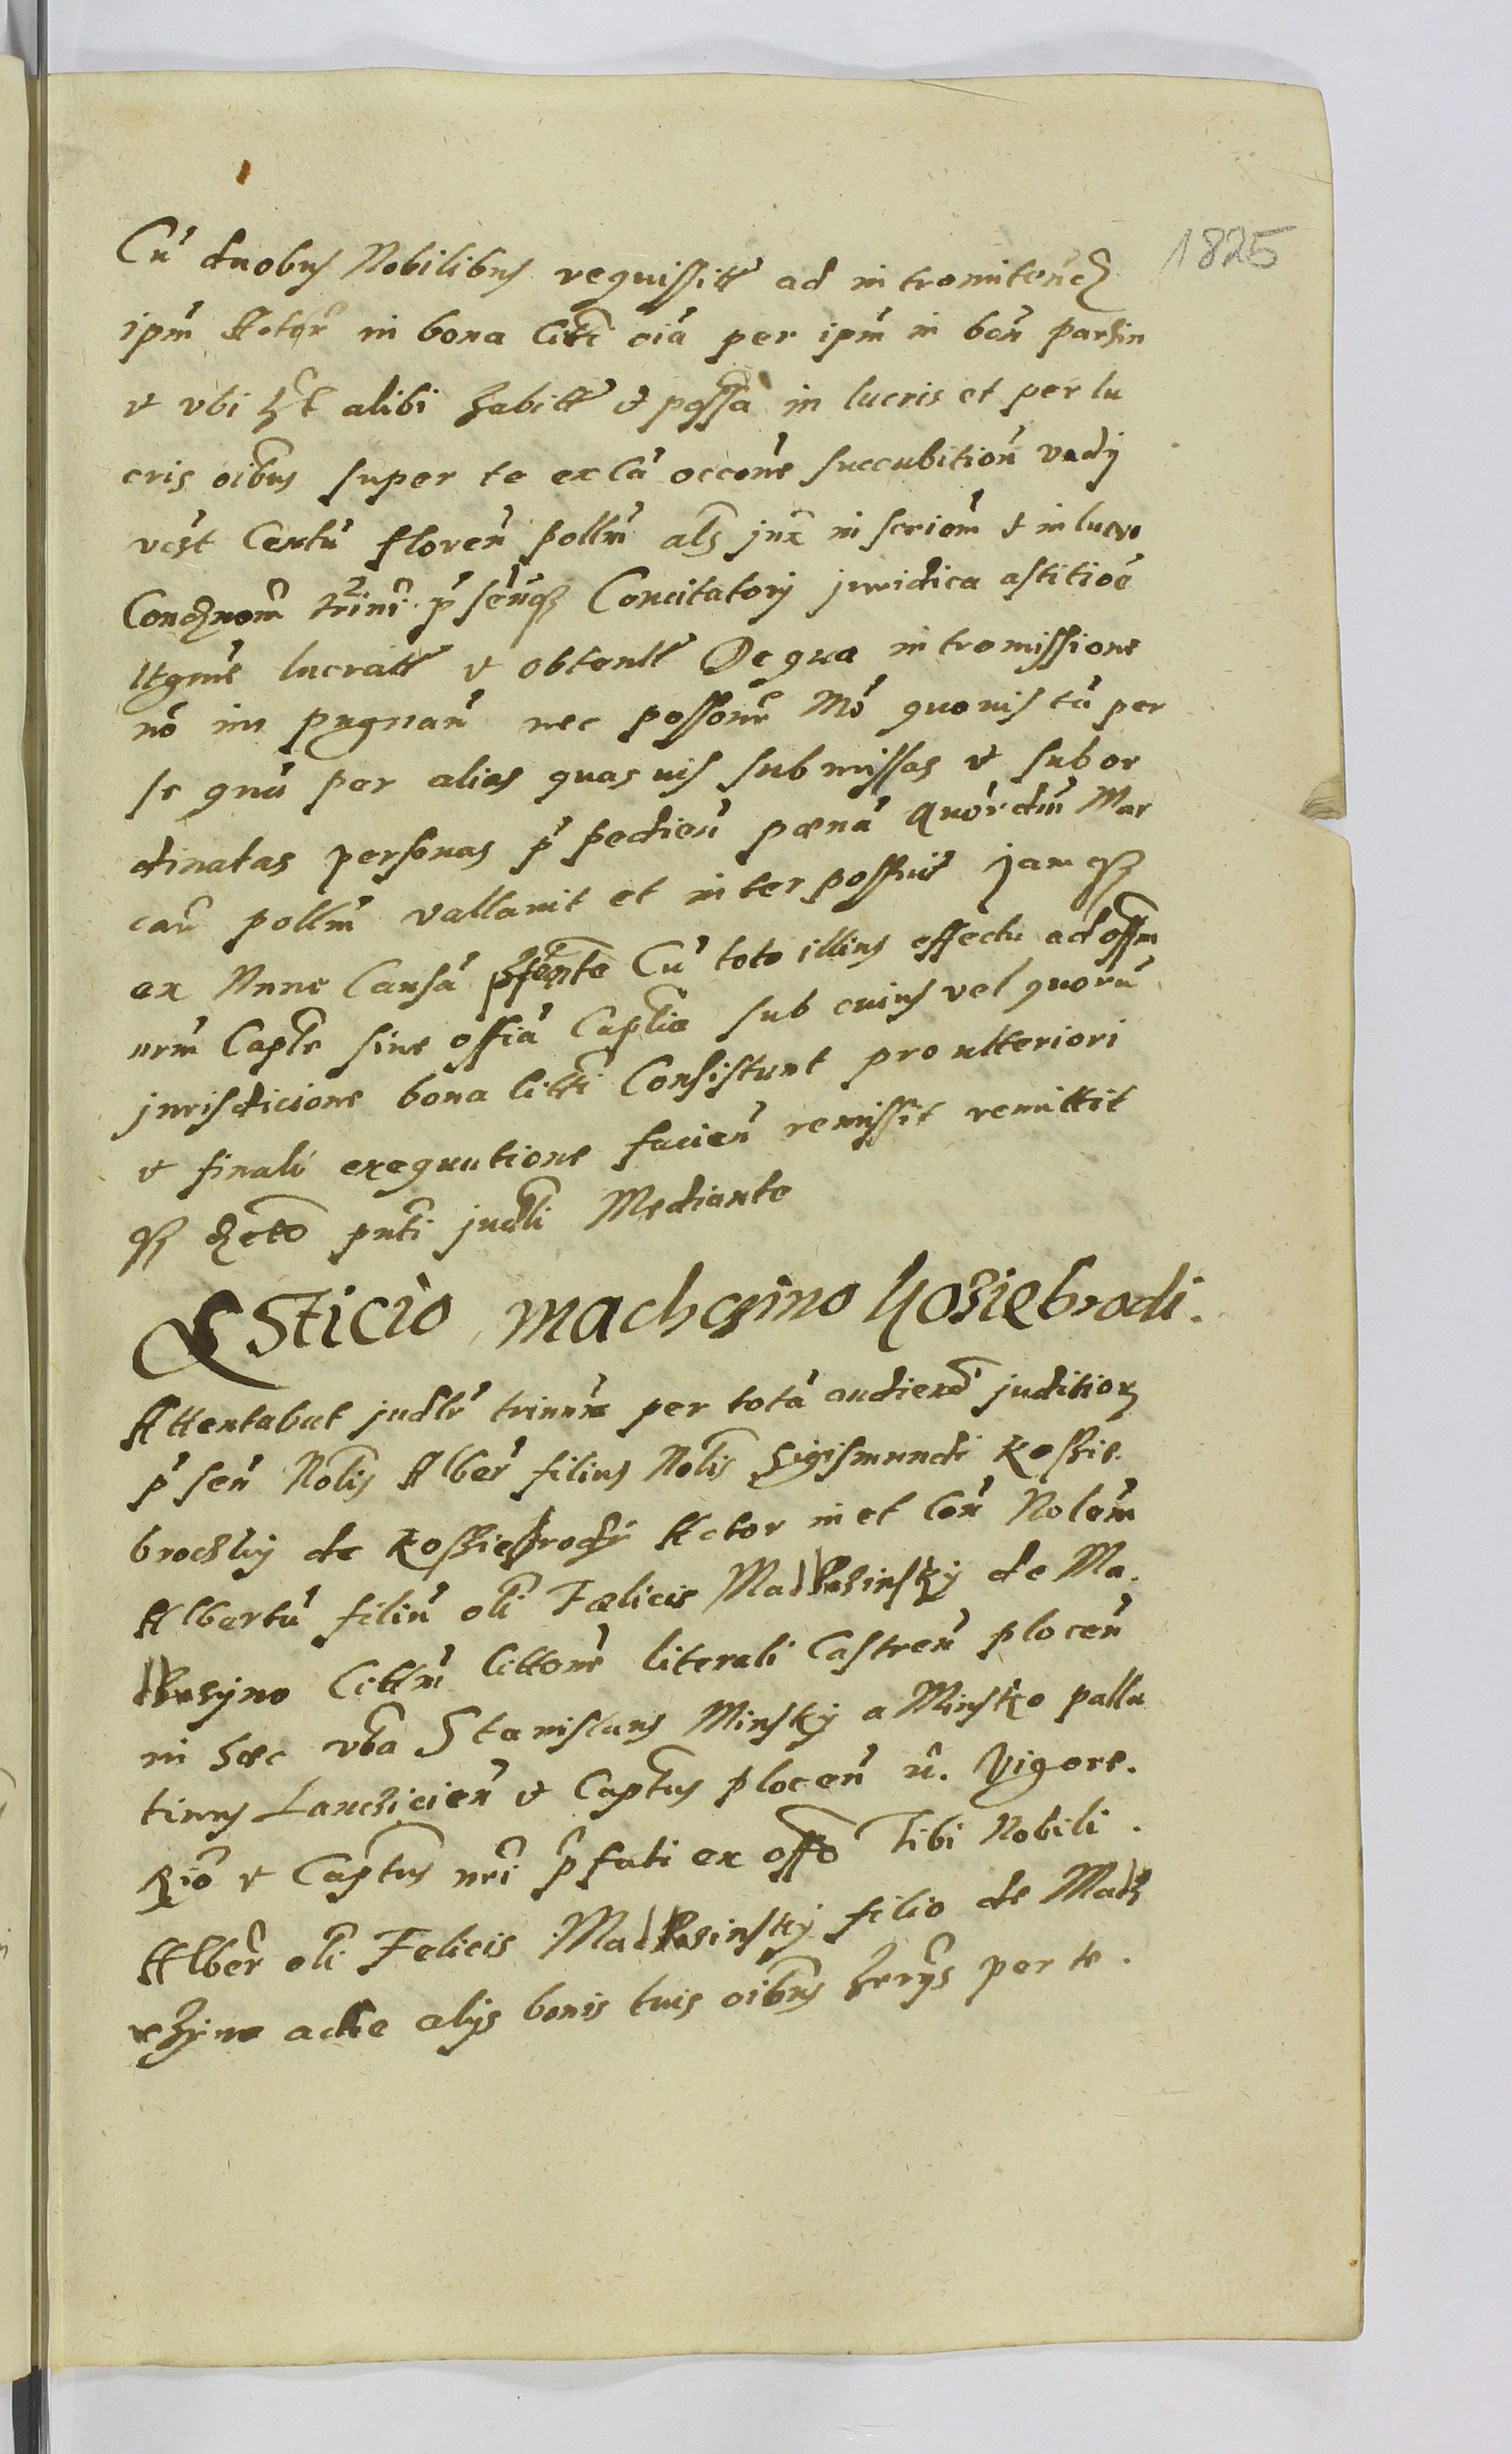 1825
Cū duobus Nobilibus requissitt ad intromitend
ipm Actor in bona Citti oiā per ipm in bon parzin
et ubi hēt alibi habitt et possa in lucris et per lu
cris oibus super te ex Cā occone succubition vady
Centū floren pollm als jux inscriom et in lucro
Condnom trini p senq Concitatory juridica astitioe
lucratt et obtentt De qua intromissione
nō im pugnan nec possone Mō quovis tā per
se qnā per alias quasvis submissas et subor
dinatas personas p pedien pœnā quor dm Mar
car pollm vallavit et interpossuit jamq
ex Nunc Causā pnte Cū toto illius effectu ad offm
nrm Caple sive offiā Captie sub cuius vel quorū
jurisdicione bona Citti Consistunt pro ulteriori
et finali exequutione facien remissit remittit
q Dcto pnti judli Mediante
Asticio Machcino Kosiebrodi.
Attentabat judlr trinus per totā audienā juditior
p sen Nolis Alber filius Nolis Sigismundi Kossie.
brodzky de Kossiebrody Actor in et Con Nolem
Albertū filiū oli Fœlicis Machczinsky de Ma.
chczyno Cittm Cittone literali Castren plocen
in hæc vba Stanislaus Minsky a Minsko palla
tinus Lancicien et Captus plocen n. Vigore.
Rio et Captus nri pfati ex offo Tibi Nobili.
Alber oli Felicis Machczinsky filio de Mach
czyno acde alys bonis tuis oibus per te.